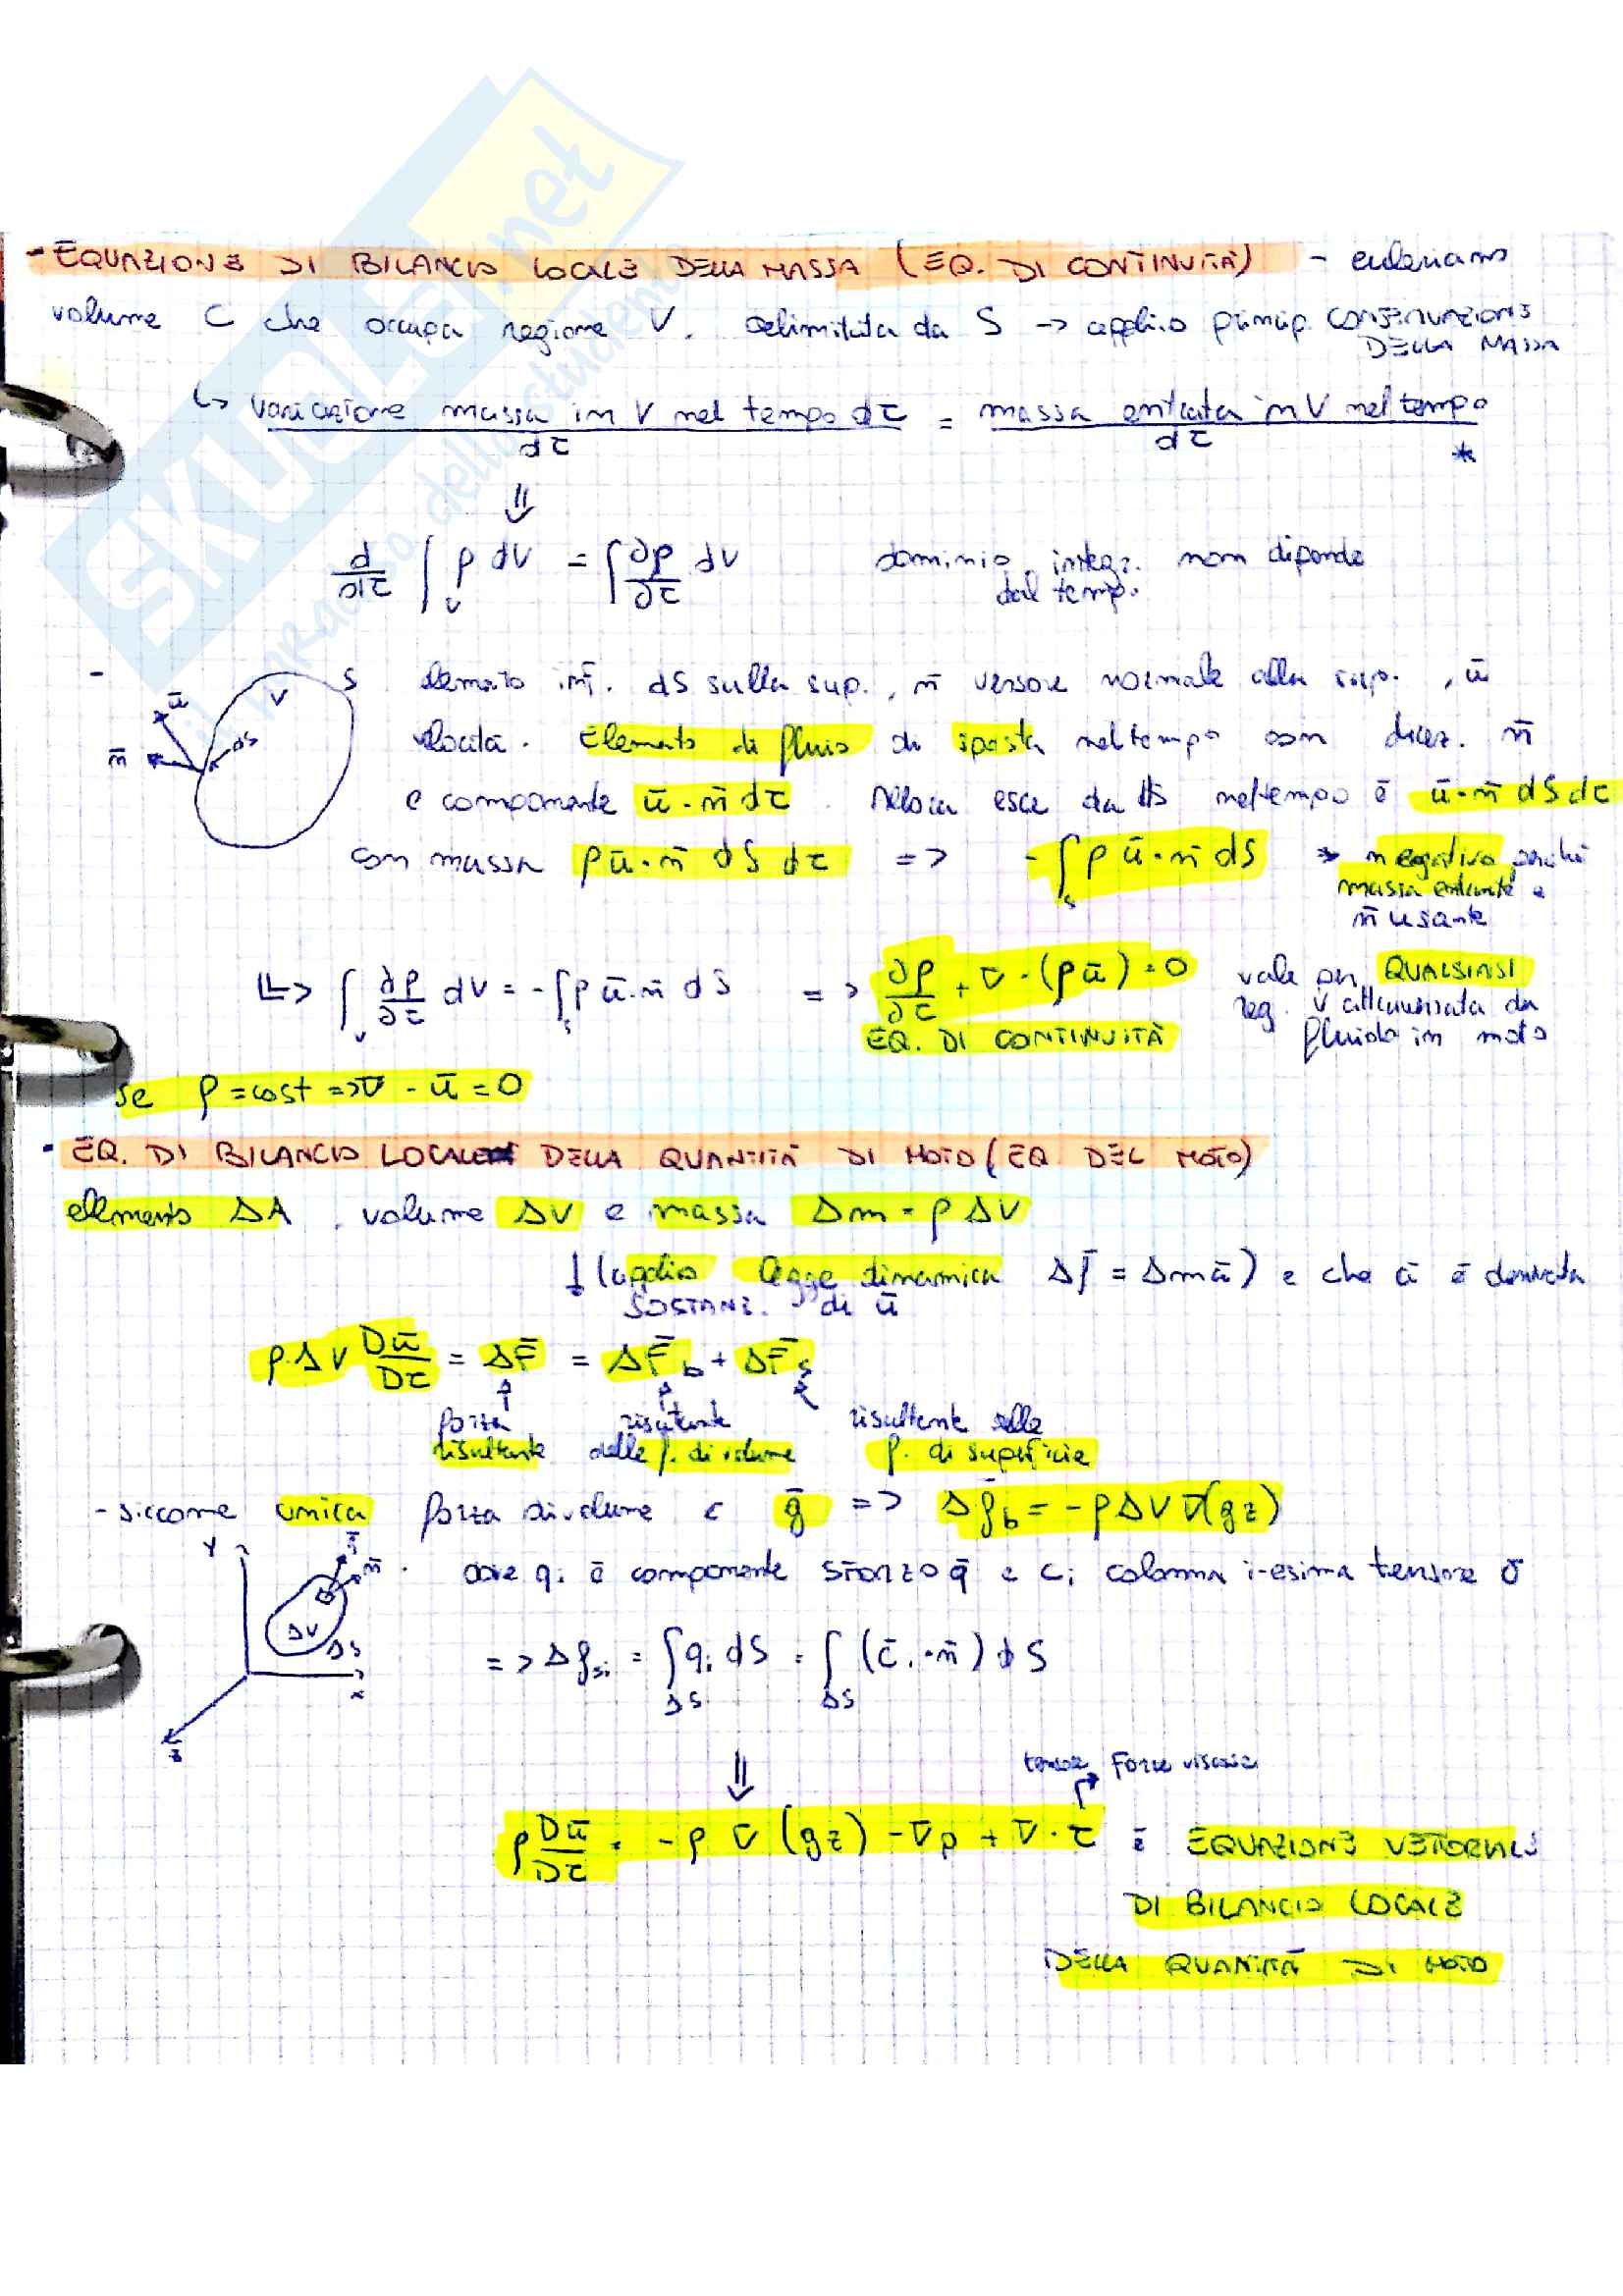 SKUOLA.net
il paradiso dello studente
- EQUAZIONE DI BILANCIO LOCALE DELLA MASSA (EQ. DI CONTINUITÀ) - euleriano
volume C che occupa regione V. delimitata da S → applico princip. CONSERVAZIONE
DELLA MASSA
↳ variazione massa in V nel tempo dτ / dτ = massa entrata in V nel tempo / dτ *
⇓
d/dτ ∫_V ρ dV = ∫ ∂ρ/∂τ dV dominio integr. non dipende
dal temp.
- elemento inf. dS sulla sup., n̄ versore normale alla sup., ū
V S ū n̄ dS
velocità. Elemento di fluio di sposta nel tempo con direz. n̄
e componente ū · n̄ dτ. Allora esce da dS nel tempo è ū · n̄ dS dτ
con massa ρū · n̄ dS dτ => -∫_S ρ ū · n̄ dS → negativo perché
massa entrante e
n̄ uscante
=> ∫_V ∂ρ/∂τ dV = -∫_S ρ ū · n̄ dS => ∂ρ/∂τ + ∇ · (ρū) = 0 vale per QUALSIASI
reg. V attraversata da
EQ. DI CONTINUITÀ fluido in moto
se ρ = cost => ∇ · ū = 0
- EQ. DI BILANCIO LOCALE DELLA QUANTITÀ DI MOTO (EQ DEL MOTO)
elemento ΔA, volume ΔV e massa Δm = ρ ΔV
↓ (applico legge dinamica Δf̄ = Δm ā) e che ā è derivata
SOSTANZ. di ū
ρ·ΔV Dū/Dτ = ΔF̄ = ΔF̄_b + ΔF̄_s
forza risultante risultante delle
risultante delle f. di volume f. di superficie
- siccome unica forza di volume è ḡ => Δf̄_b = -ρΔV∇(gz)
Y n̄ ΔV ΔS x z
dove q_i è componente SFORZO q̄ e c_i colonna i-esima tensore σ
=> Δf_si = ∫_ΔS q_i dS = ∫_ΔS (c̄_i · n̄) dS
⇓
tensore Forze viscose
ρ Dū/Dτ = -ρ ∇(gz) - ∇p + ∇ · τ è EQUAZIONE VETORIALE
DI BILANCIO LOCALE
DELLA QUANTITÀ DI MOTO